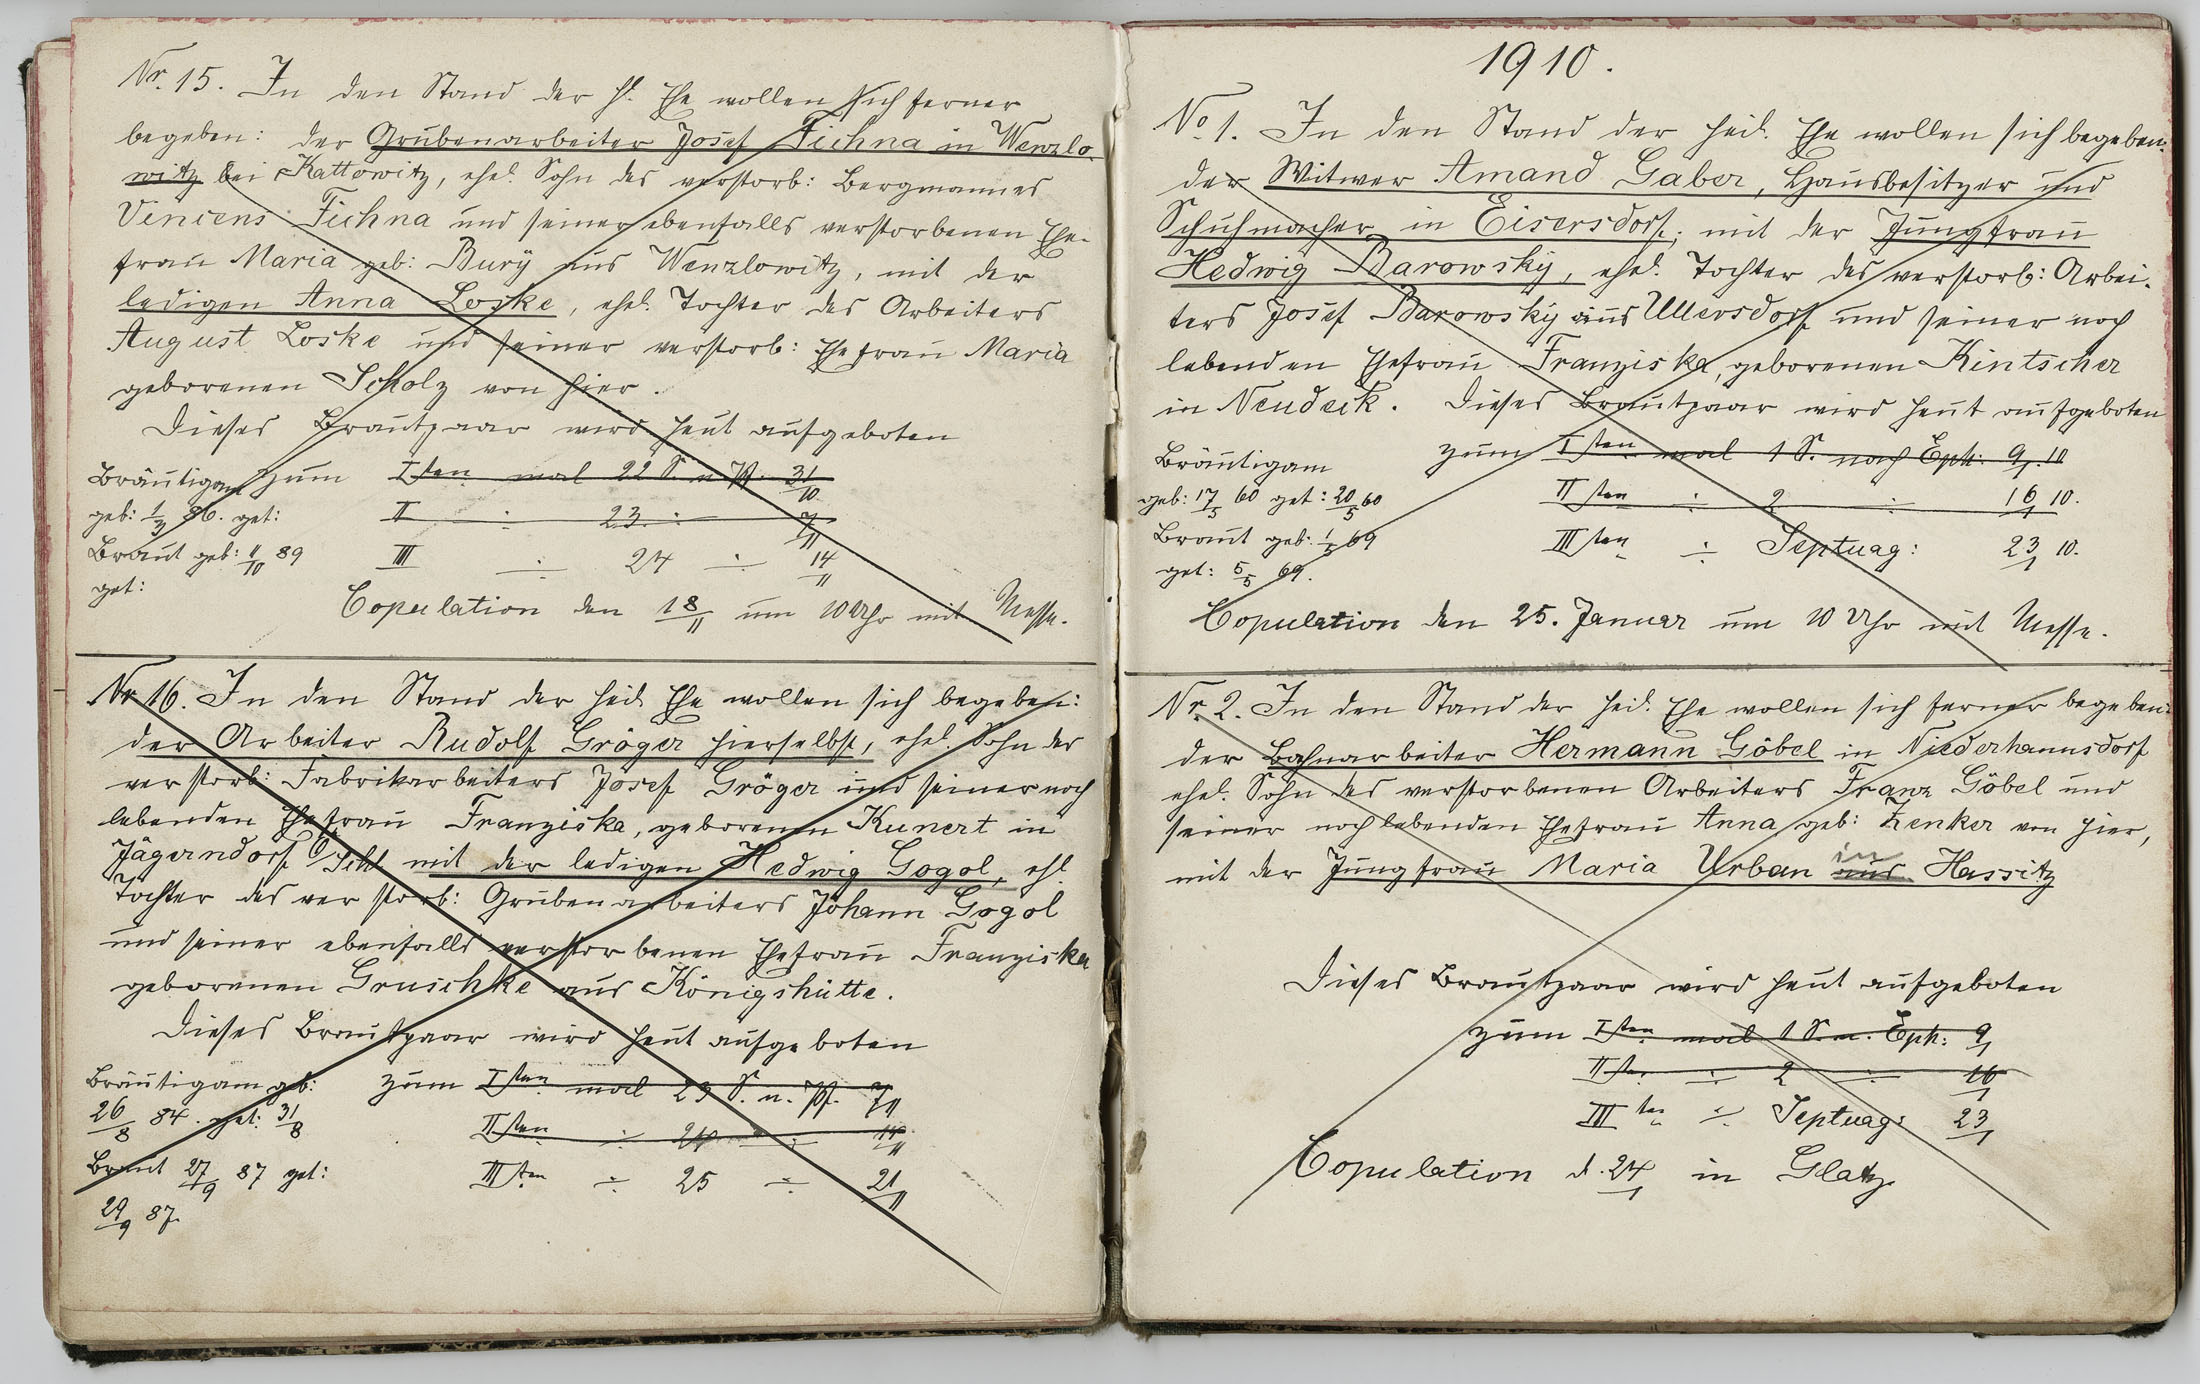 Nr. 15. In den Stand der hl. Ehe wollen sich ferner
begeben: der Grubenarbeiter Josef Fichna in Wenzlo-
witz bei Kattowitz, ehel. Sohn des verstorb: Bergmannes
Vincens Fichna und seiner ebenfalls verstorbenen Ehe-
frau Maria geb: Burÿ aus Wenzlowitz, mit der
ledigen Anna Loske, ehel. Tochter des Arbeiters
August Loske und seiner verstorb: Ehefrau Maria
geborenen Scholz von hier.
Dieses Brautpaar wird heut aufgeboten
Bräutigam zum Isten mal 22 S. n. Pf. 31/10
geb: 1/3 86. get: II ÷ 23 ÷ 7/11
Braut geb: 11/10 89 III ÷ 24 ÷ 14/11
get:
Copulation den 18/11 um 10 Uhr mit Messe.
Nr. 16. In den Stand der heil. Ehe wollen sich begeben:
der Arbeiter Rudolf Gröger hierselbst, ehel. Sohn des
verstorb: Fabrikarbeiters Josef Gröger und seiner noch
lebenden Ehefrau Franziska, geborenen Kunert in
Jägerndorf Ö/Schl mit der ledigen Hedwig Gogol, ehl.
Tochter des verstorb: Grubenarbeiters Johann Gogol
und seiner ebenfalls verstorbenen Ehefrau Franziska
geborenen Gruschke aus Königshütte.
Dieses Brautpaar wird heut aufgeboten
Bräutigam geb: zum Isten mal 23 S. n. Pf. 7/11
26/8 84. get: 31/8 IIsten ÷ 24 ÷ 14/11
Braut 27/9 87 get: IIIsten ÷ 25 ÷ 21/11
29/9 87.
1910.
No 1. In den Stand der heil. Ehe wollen sich begeben:
der Witwer Amand Gaber, Hausbesitzer und
Schuhmacher in Eisersdorf; mit der Jungfrau
Hedwig Barowskÿ, ehel. Tochter des verstorb: Arbei-
ters Josef Barowskÿ aus Ullersdorf und seiner noch
lebenden Ehefrau Franziska, geborenen Kintscher
in Neudeck. Dieses Brautpaar wird heut aufgeboten
Bräutigam zum Isten mal 1 S. nach Eph: 9/1. 10
geb: 17/5 60 get: 20/5 60 IIsten ÷ 2 ÷ 16/1 10.
Braut geb: 1/5 69 IIIsten ÷ Septuag: 23/1 10.
get: 5/5 69.
Copulation den 25. Januar um 10 Uhr mit Messe.
Nr. 2. In den Stand der heil. Ehe wollen sich ferner begeben:
der Bahnarbeiter Hermann Göbel in Niederhannsdorf
ehel. Sohn des verstorbenen Arbeiters Franz Göbel und
seiner noch lebenden Ehefrau Anna geb: Zenker von hier,
in
mit der Jungfrau Maria Urban aus Hassitz
Dieses Brautpaar wird heut aufgeboten
zum Isten mal 1 S. n. Eph: 9/1
IIten ÷ 2 ÷ 16/1
IIIten ÷ Septuag: 23/1
Copulation d. 24/1 in Glatz